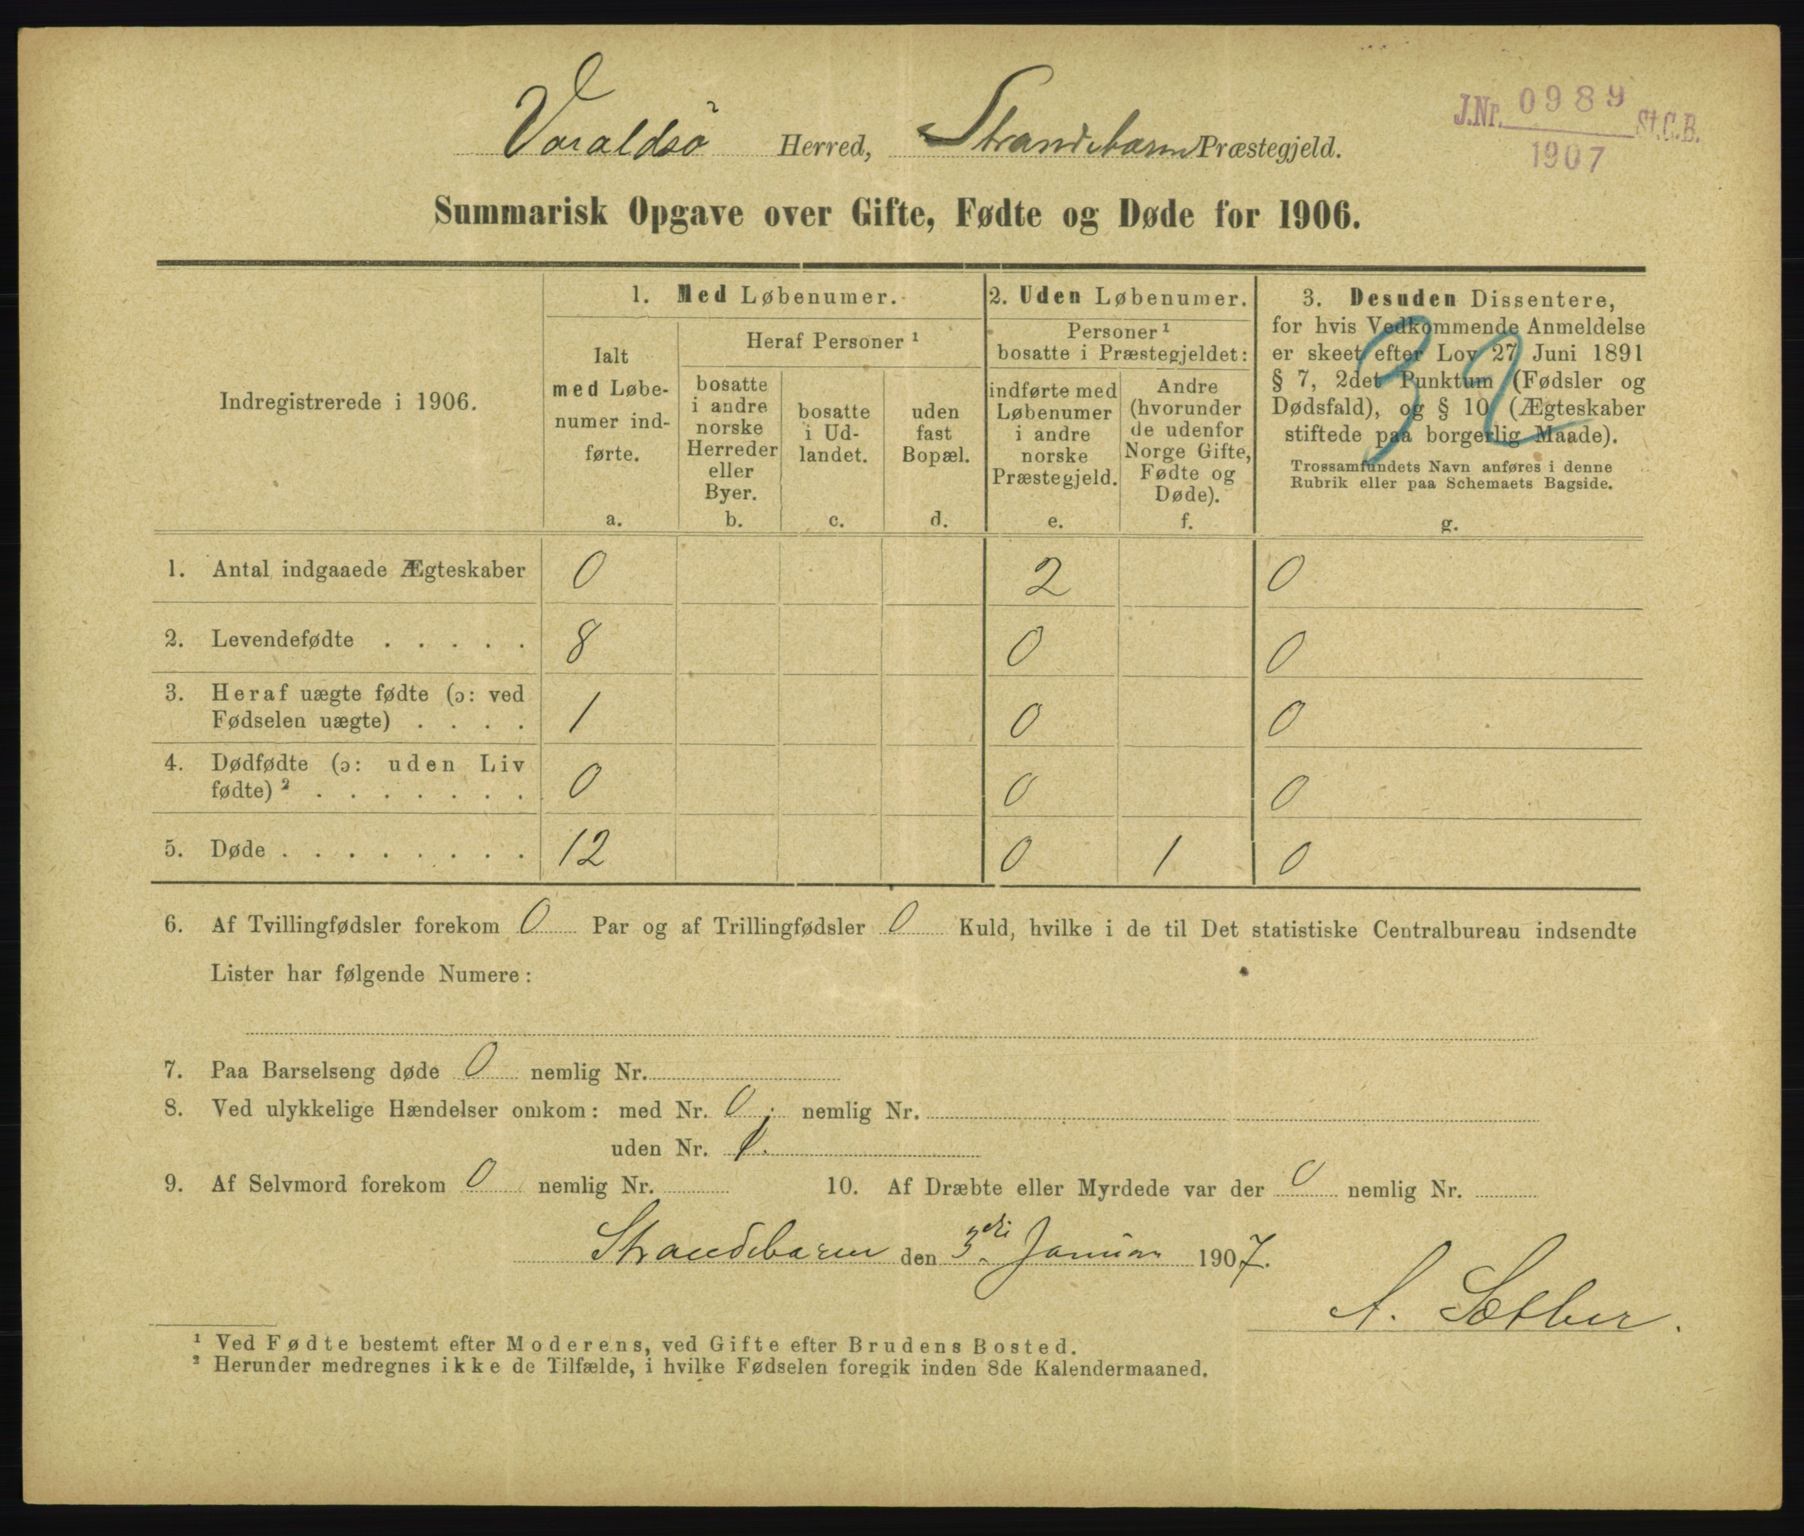 Varaldsö Herred, Strandebarm Præstegjeld.
J.Nr. 0989 St.C.B.
1907
Summarisk Opgave over Gifte, Fødte og Døde for 1906.
Indregistrerede i 1906.
1. Med Løbenumer.
Ialt
med Løbe-
numer ind-
førte.
a.
Heraf Personer ¹
bosatte
i andre
norske
Herreder
eller
Byer.
b.
bosatte
i Ud-
landet.
c.
uden
fast
Bopæl.
d.
2. Uden Løbenumer.
Personer ¹
bosatte i Præstegjeldet:
indførte med
Løbenumer
i andre
norske
Præstegjeld.
e.
Andre
(hvorunder
de udenfor
Norge Gifte,
Fødte og
Døde).
f.
3. Desuden Dissentere,
for hvis Vedkommende Anmeldelse
er skeet efter Lov 27 Juni 1891
§ 7, 2det Punktum (Fødsler og
Dødsfald), og § 10 (Ægteskaber
stiftede paa borgerlig Maade).
Trossamfundets Navn anføres i denne
Rubrik eller paa Schemaets Bagside.
g.
32
1. Antal indgaaede Ægteskaber 0 2 0
2. Levendefødte . . . . . 8 0 0
3. Heraf uægte fødte (ɔ: ved
Fødselen uægte) . . . . 1 0 0
4. Dødfødte (ɔ: uden Liv
fødte) ² . . . . . . . 0 0 0
5. Døde . . . . . . . . 12 0 1 0
6. Af Tvillingfødsler forekom 0 Par og af Trillingfødsler 0 Kuld, hvilke i de til Det statistiske Centralbureau indsendte
Lister har følgende Numere:
7. Paa Barselseng døde 0 nemlig Nr.
8. Ved ulykkelige Hændelser omkom: med Nr. 0; nemlig Nr.
uden Nr. 1.
9. Af Selvmord forekom 0 nemlig Nr. 10. Af Dræbte eller Myrdede var der 0 nemlig Nr.
Strandebarm den 3die Januar 1907.
A. Sæther.
¹ Ved Fødte bestemt efter Moderens, ved Gifte efter Brudens Bosted.
² Herunder medregnes ikke de Tilfælde, i hvilke Fødselen foregik inden 8de Kalendermaaned.